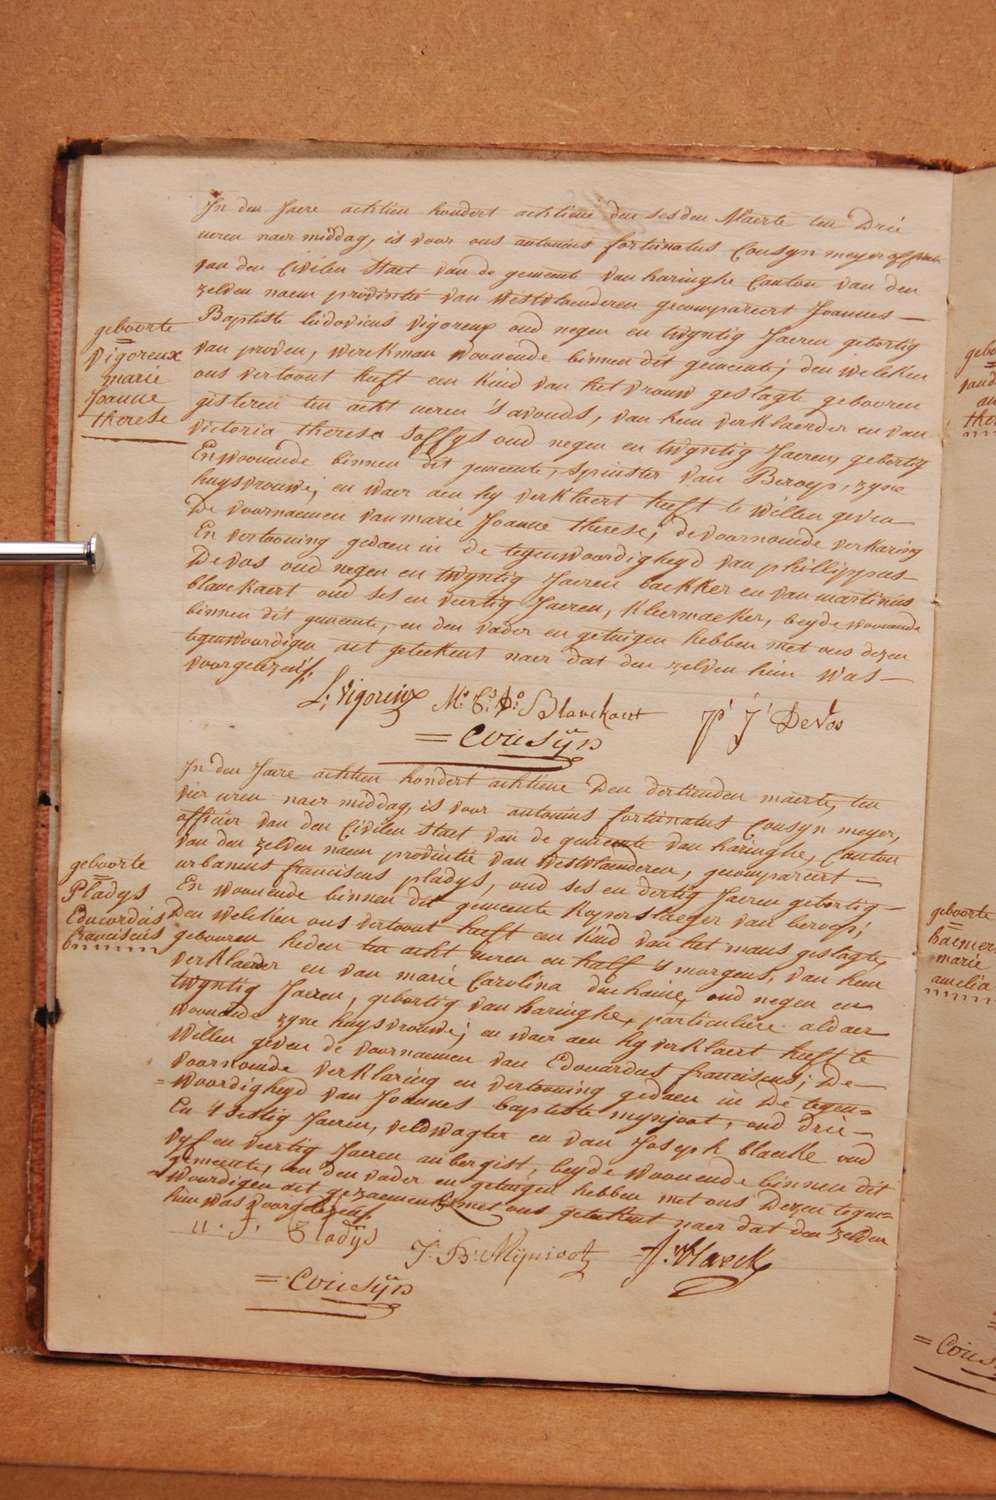 In den Jaere achtien hondert achtiene den sesden Maerte ten Drie
ueren naer middag, is voor ons antonius fortunatus Cousyn meyer officier
van den Civilen Staet van de gemeente van haringhe Canton van den
zelden naem provintie van Westvlaenderen gecompareert Joannes
Baptiste ludovicus vigoreux oud negen en twyntig Jaeren gebortig
van proven, werckman woonende binnen dit gemeente; den welcken
ons vertoont heeft een kind van het vrouw geslagte gebooren
gisteren ten acht ueren 's avonds, van hem verklaerder en van
victoria therese soffys oud negen en twyntig Jaeren, gebortig
En woonende binnen dit gemeente, spinster van Beroep, zyne
huysvrouwe; en waer aen hy verklaert heeft te willen geven
De voornaemen van marie Joanne therese; de voornoemde verklaring
En vertooning gedaen in de tegenwoordigheyd van phillippus
De vos oud negen en twyntig Jaeren backker en van martinus
blanckaert oud ses en veertig Jaeren, kleermaeker, beyde woonende
binnen dit gemeente, en den vader en getuigen hebben met ons dezen
tegenwoordigen act geteekent naer dat den zelden hun was
voorgelezen
geboorte
=
vigoreux
marie
Joanne
therese
L: vigoreux M: Blanckaert P J DeVos
= Cousijn
In den Jaere achtien hondert achtiene Den dertienden maerte, ten
vier uren naer middag, is voor antonius fortunatus Cousyn meyer,
officier van den Civilen Staet van de gemeente van haringhe, Canton
van den zelden naem provintie van Westvlaenderen, gecompareert
urbanus franciscus pladys, oud ses en dertig Jaeren gebortig
En woonende binnen dit gemeente koperslaeger van beroep;
Den welcken ons vertoont heeft een kind van het mans geslagte,
gebooren heden ten acht ueren en half 's morgens, van hem
verklaerder en van marie Carolina duchaine, oud negen en
twyntig Jaeren, gebortig van haringhe, particuliere aldaer
woonende zyne huysvrouwe; en waer aen hy verklaert heeft te
Willen geven de voornaemen van Edouardus franciscus; De
voornoemde verklaring en vertooning gedaen in De tegen=
=woordigheyd van Joannes baptiste mynjoot, oud drie
En 4 sestig Jaeren, veldwagter en van Joseph blaeke oud
vyf en veertig Jaeren aubergist, beyde woonende binnen dit
gemeente, en den vader en getuigen hebben met ons Dezen tegen=
=woordigen act gezaementlyk met ons geteekent naer dat den zelden
hun was voorgelezen
geboorte
=
Pladys
Edouardus
franciscus
u. f. Pladys
J. B. Mijnioot J. Blaeck
= Cousijn
geboorte
=
marie
amelia
= Cous